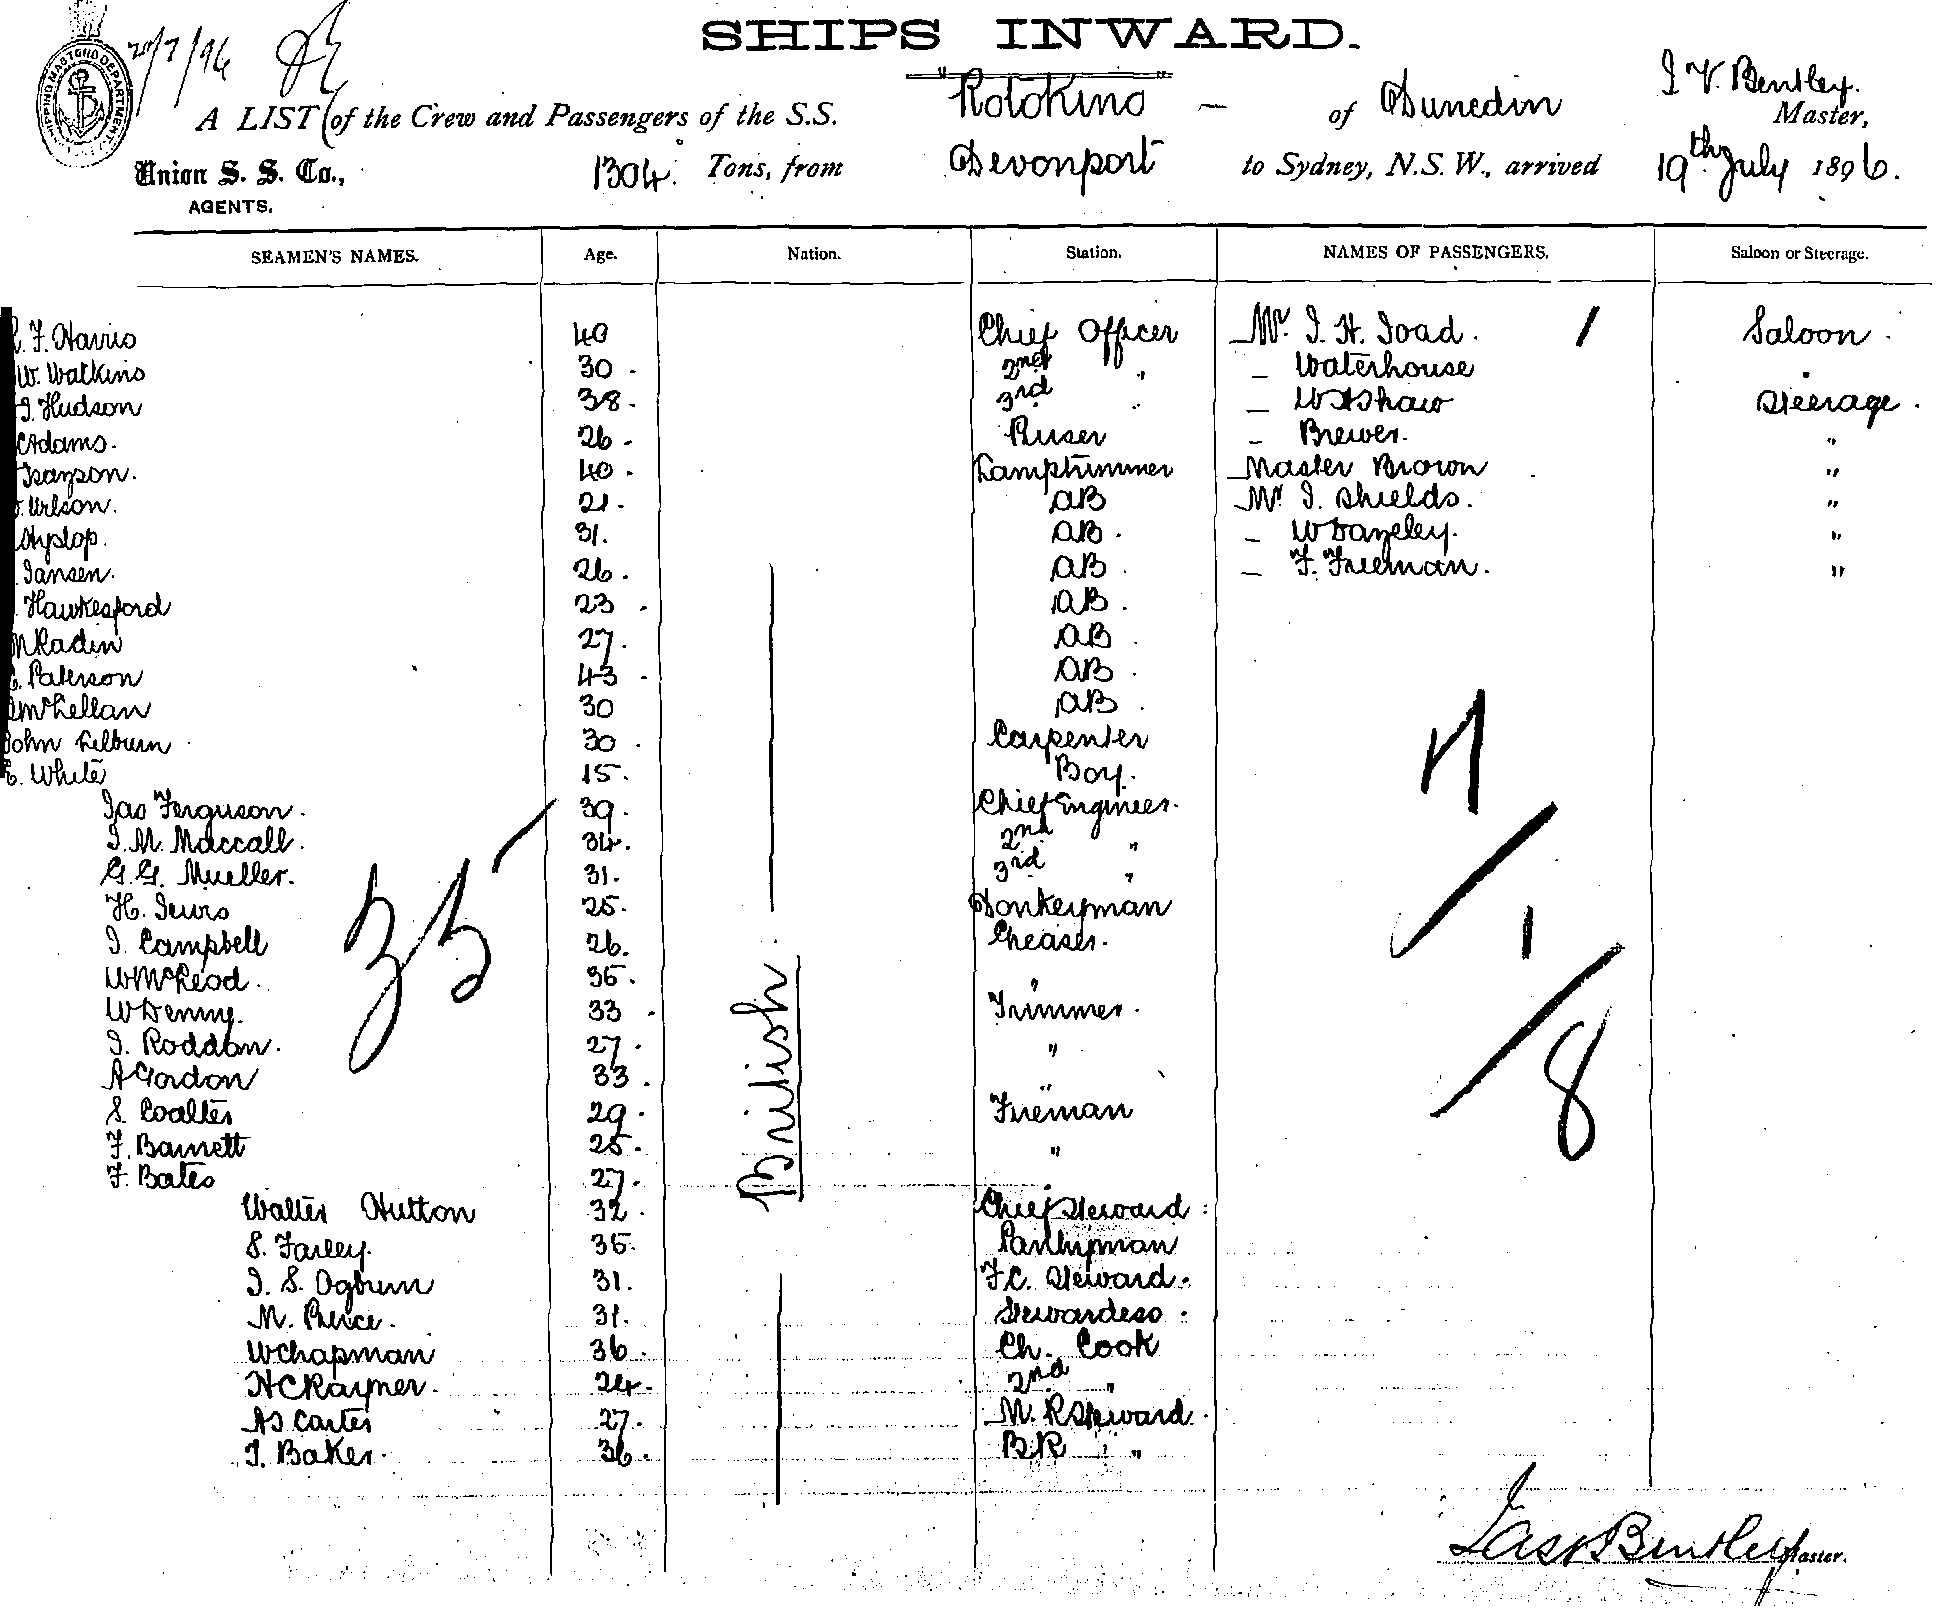 SHIPS INWARD.
20/7/96
SHIPPING MASTERS DEPARTMENT
A LIST of the Crew and Passengers of the S.S. "Rotokino" — of Dunedin J V. Bentley. Master,
Union S. S. Co., AGENTS. 1304. Tons, from Devonport to Sydney, N.S.W., arrived 19th July 1896.
SEAMEN'S NAMES. Age. Nation. Station. NAMES OF PASSENGERS. Saloon or Steerage.
F. Harris 40 Chief Officer Mr. J. H. Toad. 1 Saloon.
W. Watkins 30. 2nd " — Waterhouse "
J. Hudson 38. 3rd " — W Shaw Steerage.
C Adams. 26. — Brewer. "
40. Lamptrimmer Master Brown "
Wilson. 21. AB Mr J. Shields. "
Hyslop. 31. AB. — W Dazeley. "
Jansen. 26. AB. — F. Freeman. "
Hawkesford 23. AB.
Radin 27. AB.
Paterson 43. AB.
McLellan 30 AB.
John Lilburn 30. Carpenter
White 15. Boy.
Jas Ferguson. 39. Chief Engineer.
J. M. Maccall. 34. 2nd "
G. G. Mueller. 31. 3rd "
H. Lewis 25. Donkeyman
J. Campbell 26. Greaser.
W McLeod. 35. "
W Denny. 33. Trimmer.
J. Roddan. 27. "
A Gordon 33. "
S. Coalter 29. Fireman
F. Barnett 25. "
F. Bates 27. "
Walter Hutton 32. Chief Steward
S. Farley. 35. Pantryman
J. S. Ogburn 31. F.C. Steward.
M. Peirce. 31. Stewardess.
W Chapman 36. Ch. Cook
H C Rayner. 24. 2nd "
A J Carter 27. M. R Steward.
J. Baker. 36. B R "
British
35
7
1
8
Jas V Bentley Master.